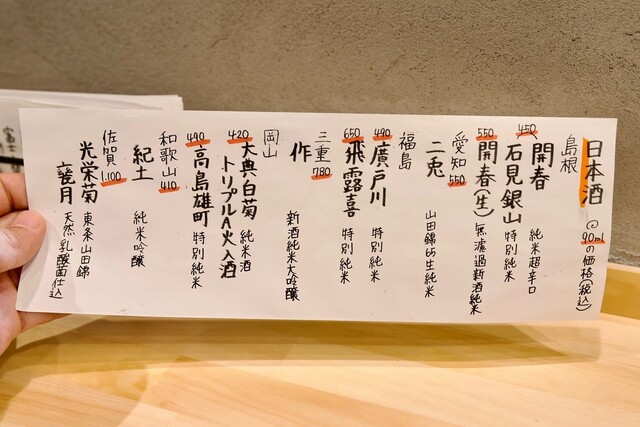 日本酒 @90mlの価格(税込)
島根
開春 純米超辛口
450
石見銀山 特別純米
開春(生) 無濾過新酒純米
550
愛知
二兎 山田錦65生純米
550
福島
廣戸川 特別純米
490
飛露喜 特別純米
650
三重
作 新酒純米大吟醸
780
岡山
大典白菊 純米酒
トリプルA火入酒
420
高島雄町 特別純米
490
和歌山
紀土 純米吟醸
410
佐賀
光栄菊 東条山田錦
月 天然乳酸菌仕込
1,100